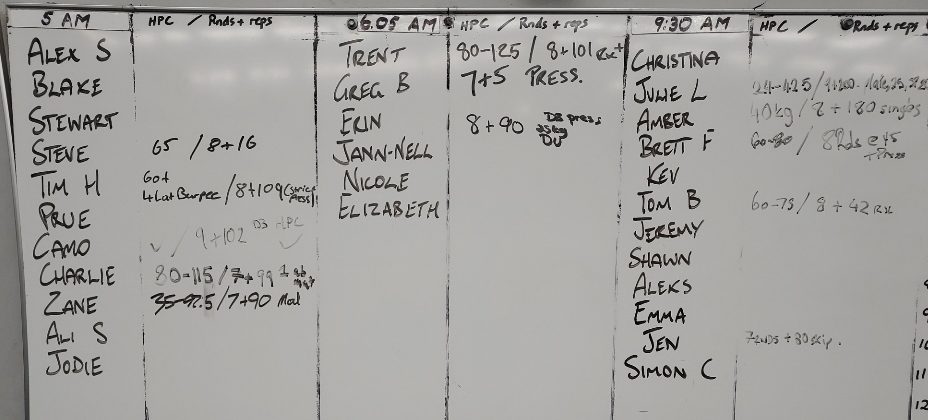 5 AM HPC / Rnds + reps
ALEX S
BLAKE
STEWART
STEVE 65 / 8+16
TIM H 60+
4 Lat Burpee / 8+109 (strict press)
PRUE
CAMO / 9+102 DB HPC
CHARLIE 80-115 / 7+99
ZANE 35-92.5 / 7+90 Mod
ALI S
JODIE
6.05 AM HPC / Rnds + reps
TRENT 80-125 / 8+101 Rx+
GREG B 7+5 PRESS.
ERIN 8+90 DB press
25kg
DU
JANN-NELL
NICOLE
ELIZABETH
9:30 AM HPC / Rnds + reps
CHRISTINA
JULIE L
AMBER 40kg / 8 + 180 singles
BRETT F 60-80 / 8 Rds
KEV
TOM B 60-75 / 8 + 42 Rx
JEREMY
SHAWN
ALEKS
EMMA
JEN 7 RNDS + 30 skip.
SIMON C
9
10
11
12